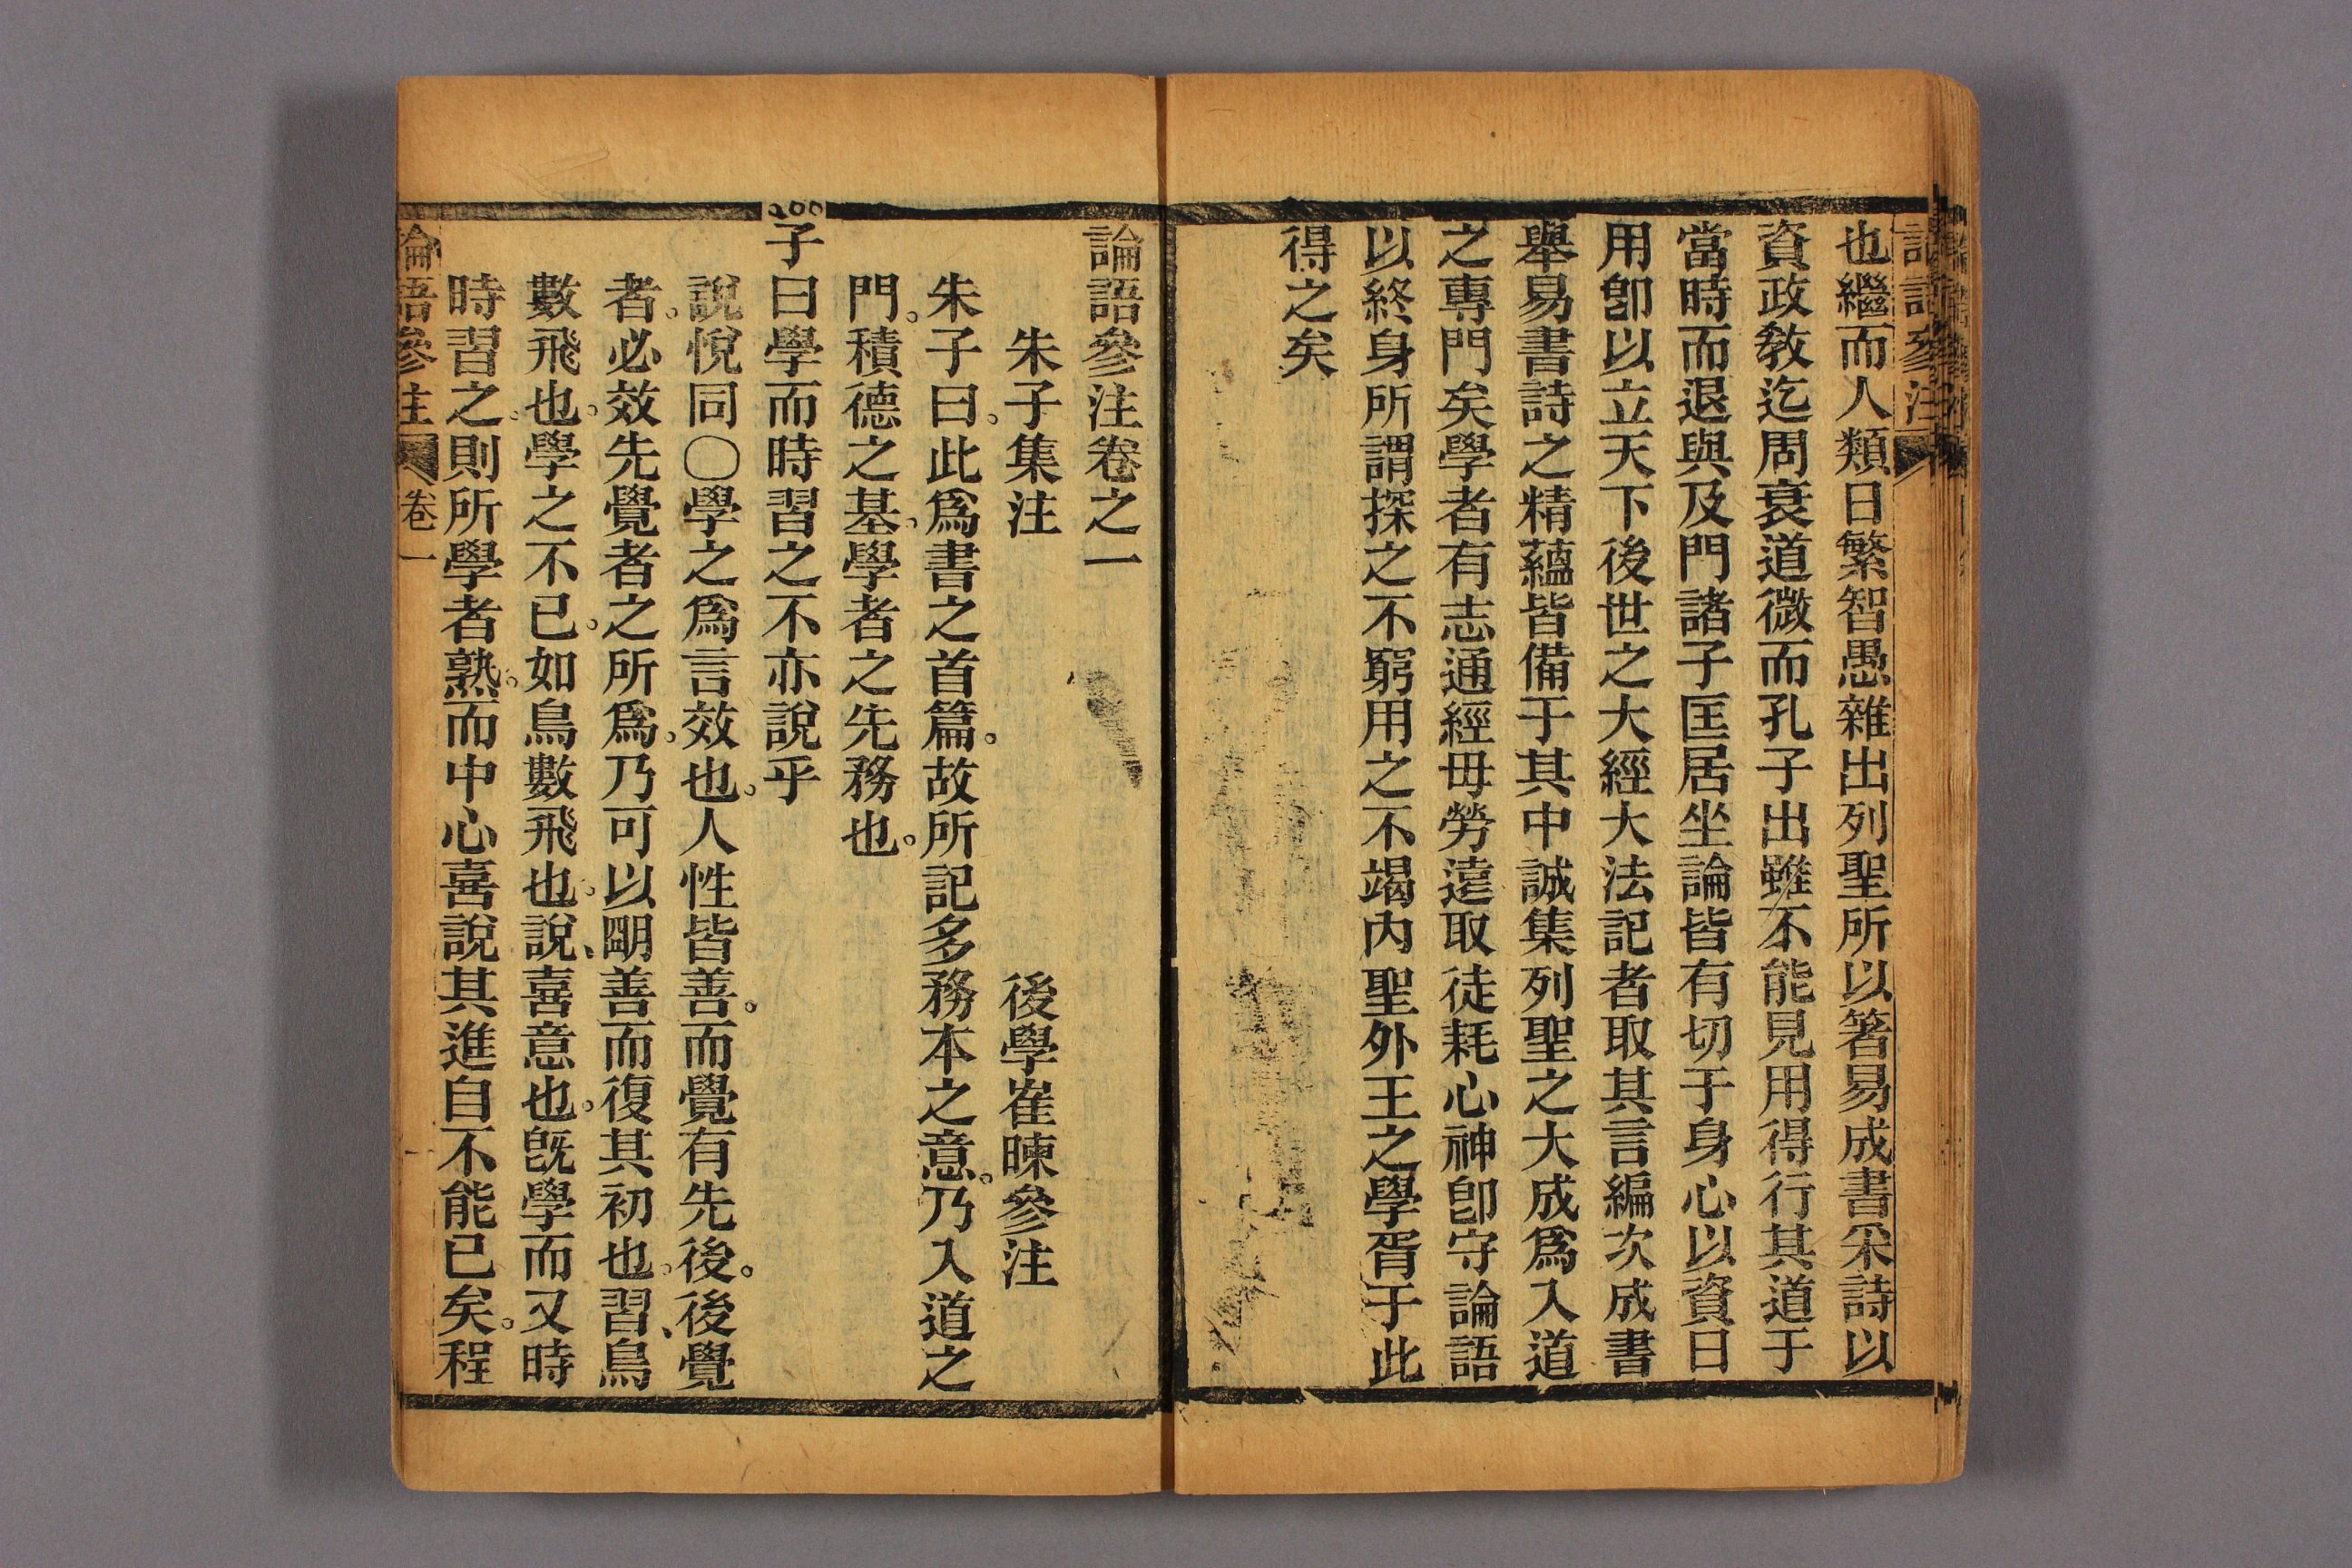 也繼而人類日繁智愚雜出列聖所以著易成書采詩以
資政敎迄周衰道微而孔子出雖不能見用得行其道于
當時而退與及門諸子匡居坐論皆有切于身心以資日
用卽以立天下後世之大經大法記者取其言編次成書
舉易書詩之精蘊皆備于其中誠集列聖之大成爲入道
之專門矣學者有志通經毋勞遠取徒耗心神卽守論語
以終身所謂探之不窮用之不竭內聖外王之學胥于此
得之矣
論語參注卷之一
朱子集注　後學崔暕參注
朱子曰。此爲書之首篇。故所記多務本之意。乃入道之
門。積德之基。學者之先務也。
子曰學而時習之不亦說乎
說悅同〇學之爲言效也。人性皆善。而覺有先後。後覺
者。必效先覺者之所爲。乃可以明善而復其初也。習、鳥
數飛也。學之不已。如鳥數飛也。說、喜意也。旣學而又時
時習之。則所學者熟。而中心喜說其進自不能已矣。程
論語參注　卷一　一